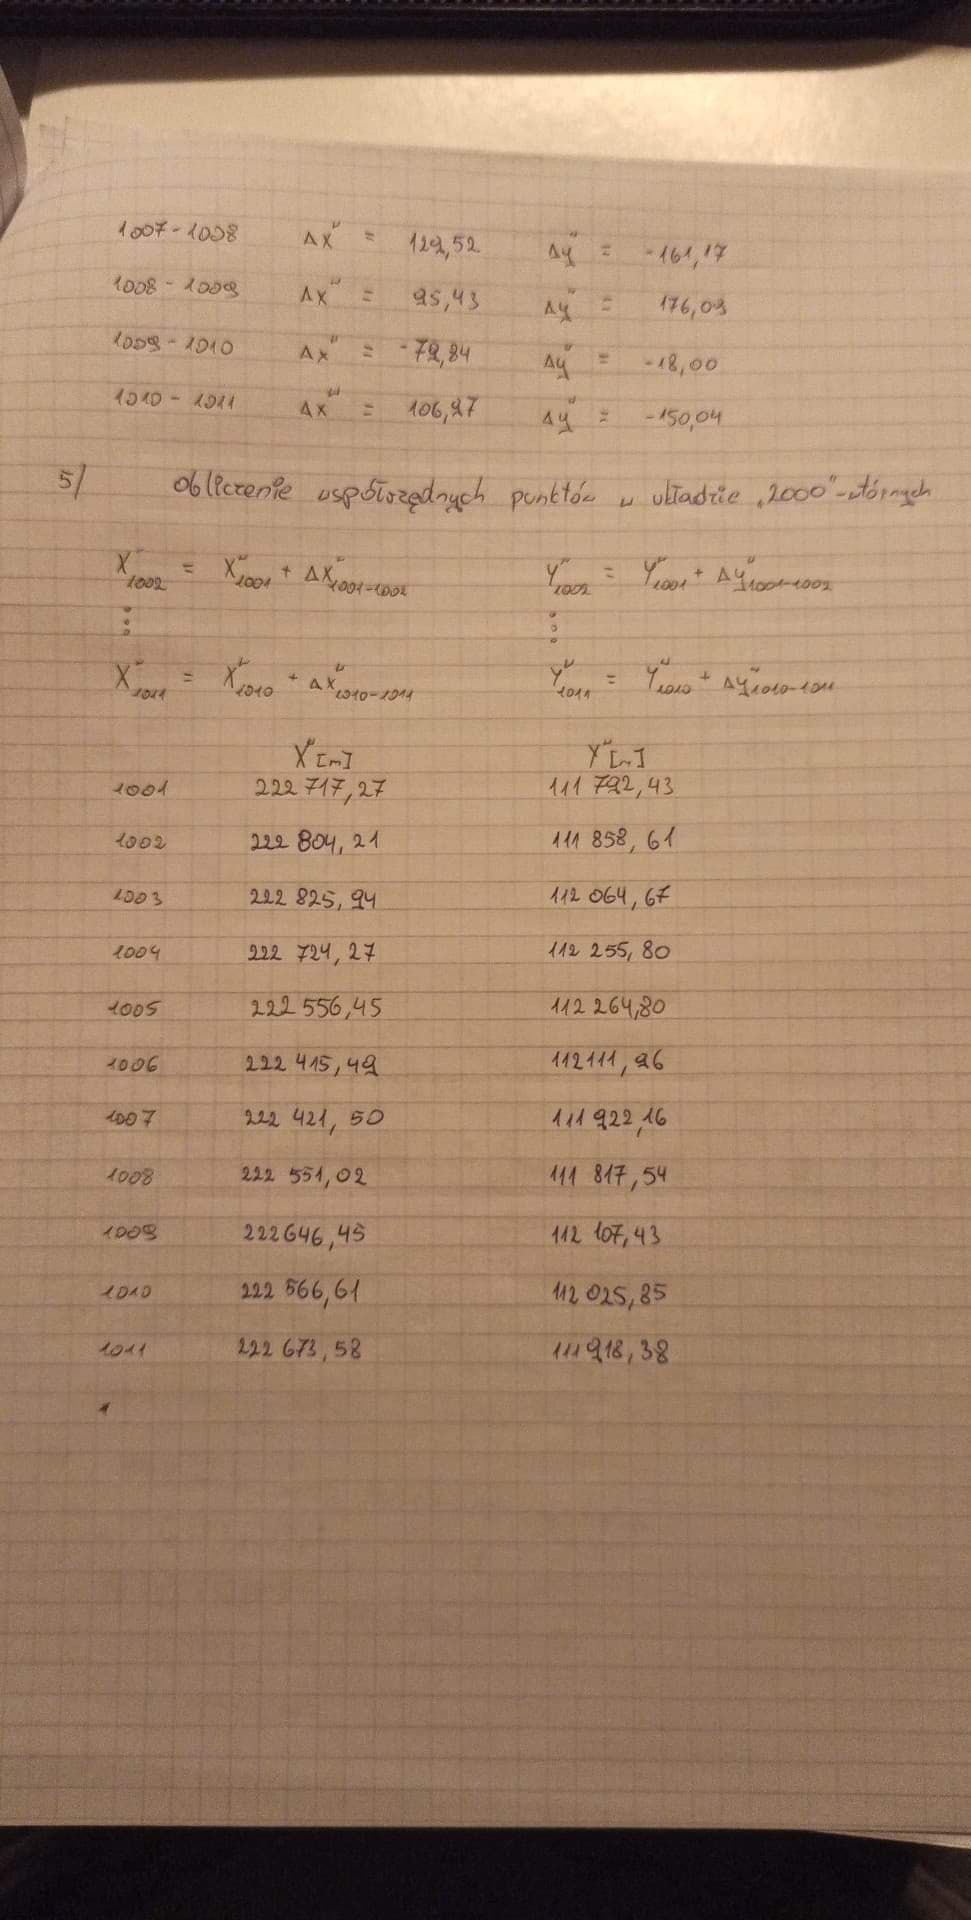 1007-1008 ΔX" = 129,52 Δy" = -161,17
1008-1009 ΔX" = 95,43 Δy" = 176,09
1009-1010 ΔX" = -79,84 Δy" = -18,00
1010-1011 ΔX" = 106,97 Δy" = -150,04
5/ Obliczenie współrzędnych punktów w układzie „2000"-wtórnych
X"1002 = X"1001 + ΔX"1001-1002 Y"1002 = Y"1001 + Δy"1001-1002
⋮ ⋮
X"1011 = X"1010 + ΔX"1010-1011 Y"1011 = Y"1010 + Δy"1010-1011
X" [m] Y" [m]
1001 222 717,27 111 792,43
1002 222 804,21 111 858,61
1003 222 825,94 112 064,67
1004 222 724,27 112 255,80
1005 222 556,45 112 264,80
1006 222 415,49 112 111,96
1007 222 421,50 111 922,16
1008 222 551,02 111 817,54
1009 222 646,45 112 107,43
1010 222 566,61 112 025,85
1011 222 673,58 111 918,38